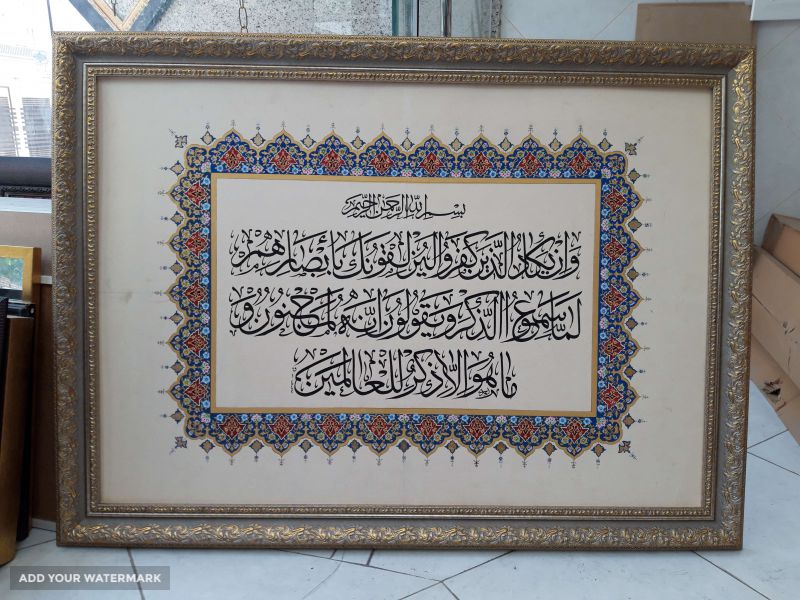 بسم الله الرحمن الرحيم
وَإِن يَكَادُ الَّذِينَ كَفَرُوا لَيُزْلِقُونَكَ بِأَبْصَارِهِمْ
لَمَّا سَمِعُوا الذِّكْرَ وَيَقُولُونَ إِنَّهُ لَمَجْنُونٌ وَ
مَا هُوَ إِلَّا ذِكْرٌ لِلْعَالَمِينَ
ADD YOUR WATERMARK